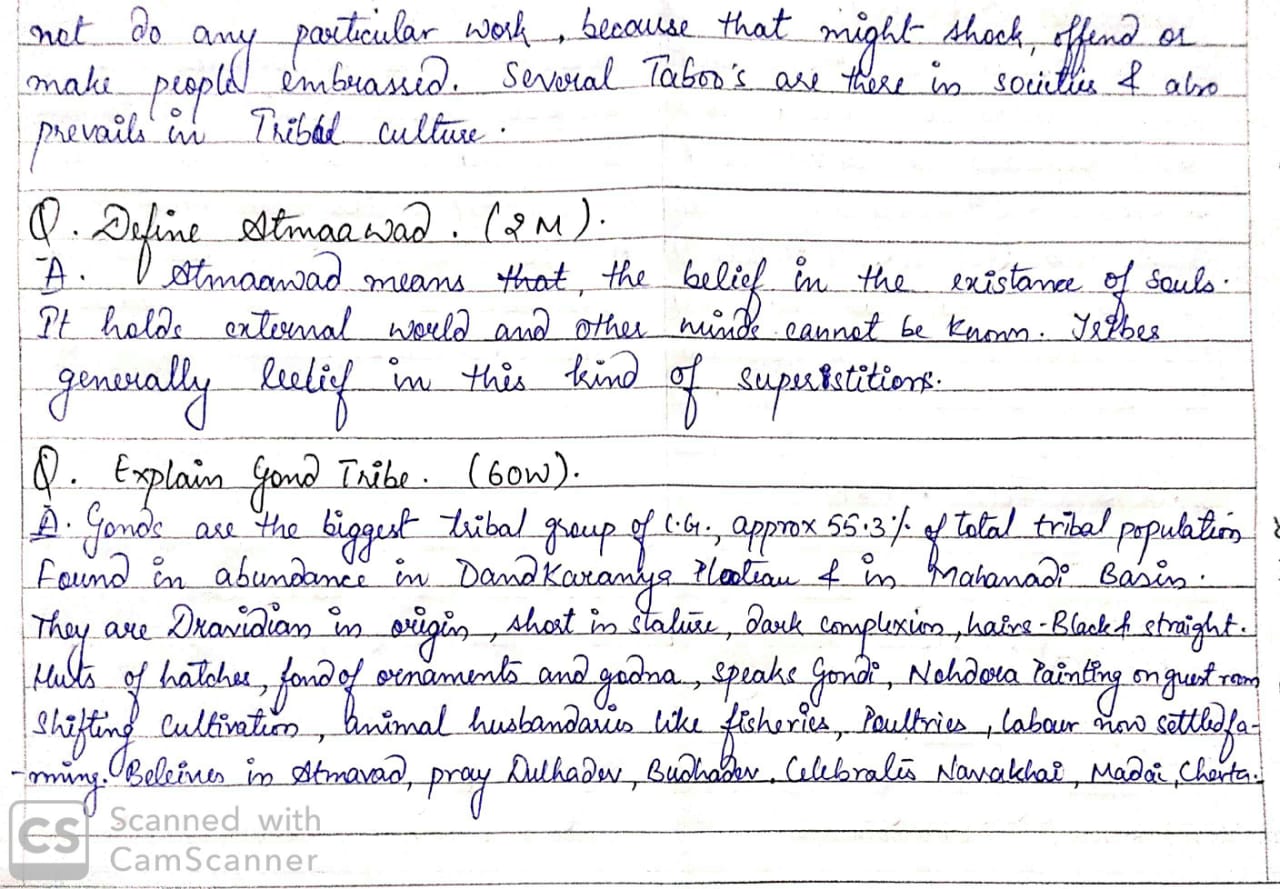 not do any particular work, because that might shock, offend or
make people embrassed. Several Taboo's are there in societies & also
prevails in Tribal culture.
Q. Define Atmaawad. (2M).
A. Atmaawad means that, the belief in the existance of souls.
It holds external world and other minds cannot be known. Tribes
generally belief in this kind of superstitions.
Q. Explain Gond Tribe. (60W).
A. Gonds are the biggest tribal group of C.G., approx 55.3% of total tribal population
Found in abundance in Dandkaranya Plateau & in Mahanadi Basin.
They are Dravidian in origin, short in stature, dark complexion, hairs-Black & straight.
Huts of hatches, fond of ornaments and godna, speaks Gondi, Nohdora Painting on guest room
Shifting Cultivation, animal husbandaries like fisheries, Poultries, labour now settled fa-
-rming. Beleives in Atmavad, pray Dulhadev, Budhadev. Celebrates Navakhai, Madai, Cherta.
CS Scanned with
CamScanner